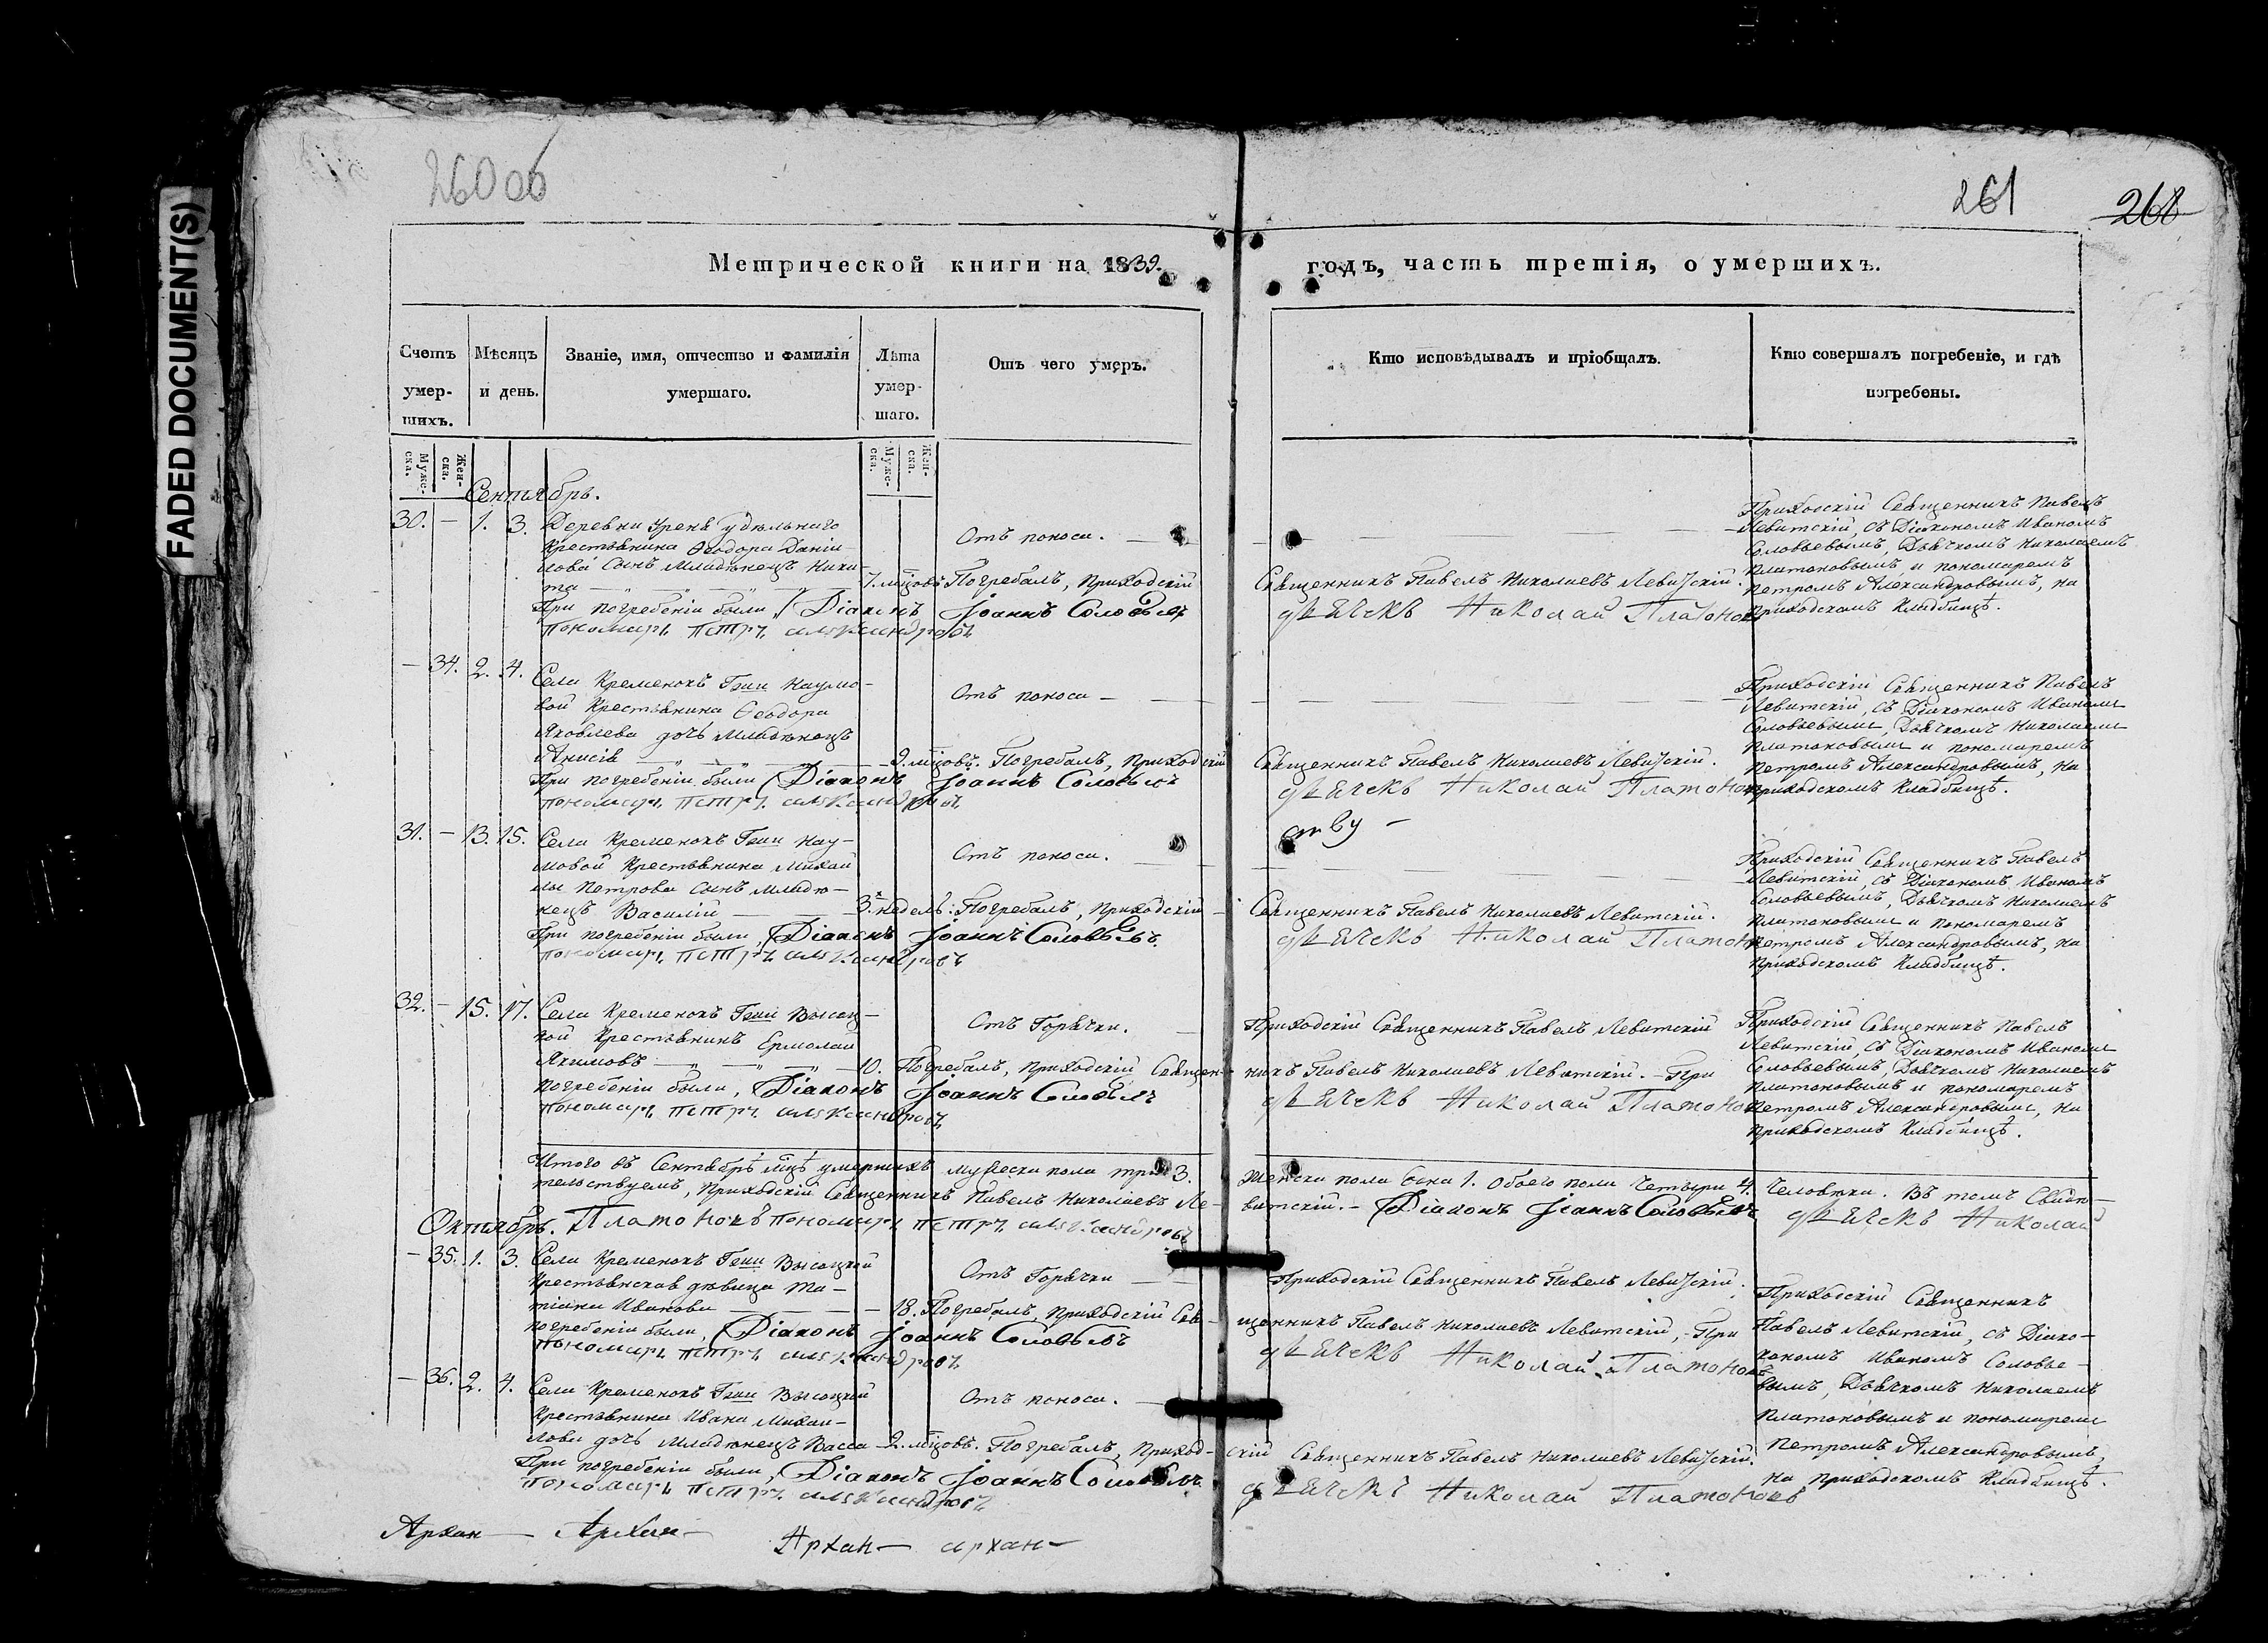 FADED DOCUMENT(S)
260 об
261
268
Метрической книги на 1839.
годъ, часть третія, о умершихъ.
Счетъ умер-шихъ.
Мѣсяцъ и день.
Званіе, имя, отчество и фамилія умершаго.
Лѣта умер-шаго.
Отъ чего умеръ.
Кто исповѣдывалъ и пріобщалъ.
Кто совершалъ погребеніе, и гдѣ погребены.
Мужс-ска.
Жен-ска.
Мужс-ска.
Жен-ска.
Сентябрь.
30. — 1. 3. Деревни Урень удѣльнаго
Крестьянина Ѳеодора Даніи-
лова Сынъ Младѣнецъ Ники-
та — 7. мѣцовъ
Отъ поноса.
Погребалъ, Приходскій
Священникъ Павелъ Николаевъ Левитскій.
При погребеніи были, Діаконъ Іоаннъ Соловьевъ
Дьячекъ Николай Платоновъ
Пономарь Петръ Александровъ
Приходскій Священникъ Павелъ
Левитскій, съ Діакономъ Иваномъ
Соловьевымъ, Дьячкомъ Николаемъ
Платоновымъ, и пономаремъ
Петромъ Александровымъ, на
Приходскомъ Кладбищѣ.
— 34. 2. 4. Села Кременокъ Гжи Наумо-
вой Крестьянина Ѳеодора
Яковлева дочь Младѣнецъ
Анисія — 9. мѣцовъ.
Отъ поноса —
Погребалъ, Приходскій
Священникъ Павелъ Николаевъ Левитскій.
При погребеніи были Діаконъ Іоаннъ Соловьевъ
Дьячекъ Николай Платоновъ
Пономарь Петръ Александровъ
Приходскій Священникъ Павелъ
Левитскій, съ Діакономъ Иваномъ
Соловьевымъ, Дьячкомъ Николаемъ
Платоновымъ и пономаремъ
Петромъ Александровымъ, на
Приходскомъ Кладбищѣ.
31. — 13. 15. Села Кременокъ Гжи Нау-
мовой Крестьянина Михаи
лы Петрова Сынъ Младѣ-
нецъ Василій — 3. недель:
Отъ поноса.
Погребалъ, Приходскій
Священникъ Павелъ Николаевъ Левитскій.
При погребеніи были, Діаконъ Іоаннъ Соловьевъ.
Дьячекъ Николай Платоновъ
Пономарь Петръ Александровъ
Приходскій Священникъ Павелъ
Левитскій, съ Діакономъ Иваномъ
Соловьевымъ, Дьячкомъ Николаемъ
Платоновымъ и пономаремъ
Петромъ Александровымъ, на
Приходскомъ Кладбищѣ.
32. — 15. 17. Села Кременокъ Гжи Высоц-
кой Крестьянинъ Ермолай
Якимовъ — 10.
Отъ Горячки.
Приходскій Священникъ Павелъ Левитскій
Погребалъ, Приходскій Священ-
никъ Павелъ Николаевъ Левитскій. — При
погребеніи были, Діаконъ Іоаннъ Соловьевъ
Дьячекъ Николай Платоновъ
Пономарь Петръ Александровъ
Приходскій Священникъ Павелъ
Левитскій, съ Діакономъ Иваномъ
Соловьевымъ, Дьячкомъ Николаемъ
Платоновымъ и пономаремъ
Петромъ Александровымъ, на
Приходскомъ Кладбищѣ.
Итого въ Сентябрѣ мѣцѣ умершихъ мужеска пола три 3. Женска пола одна 1. Обоего пола Четыри 4. Человѣки. Въ томъ Свидѣ-
тельствуемъ, Приходскій Священникъ Павелъ Николаевъ Ле-
витскій. — Діаконъ Іоаннъ Соловьевъ Дьячекъ Николай
Платоновъ Пономарь Петръ Александровъ
Октябрь.
— 35. 1. 3. Села Кременокъ Гжи Высоцкой
Крестьянская дѣвица Та-
тіана Иванова — 18.
Отъ Горячки
Приходскій Священникъ Павелъ Левитскій.
Погребалъ, Приходскій Свя-
щенникъ Павелъ Николаевъ Левитскій, — При
погребеніи были, Діаконъ Іоаннъ Соловьевъ
Дьячекъ Николай Платоновъ
Пономарь Петръ Александровъ
— 36. 2. 4. Села Кременокъ Гжи Высоцкой
Крестьянина Ивана Михаи-
лова дочь Младѣнецъ Васса 2. мѣцовъ.
Отъ поноса.
Погребалъ, Приход-
скій Священникъ Павелъ Николаевъ Левитскій.
При погребеніи были, Діаконъ Іоаннъ Соловьевъ
Дьячекъ Николай Платоновъ
Пономарь Петръ Александровъ
Приходскій Священникъ
Павелъ Левитскій, съ Діако-
кономъ Иваномъ Соловье-
вымъ, Дьячкомъ Николаемъ
Платоновымъ и пономаремъ
Петромъ Александровымъ,
на приходскомъ Кладбищѣ.
Архан— Архан— Архан— архан—